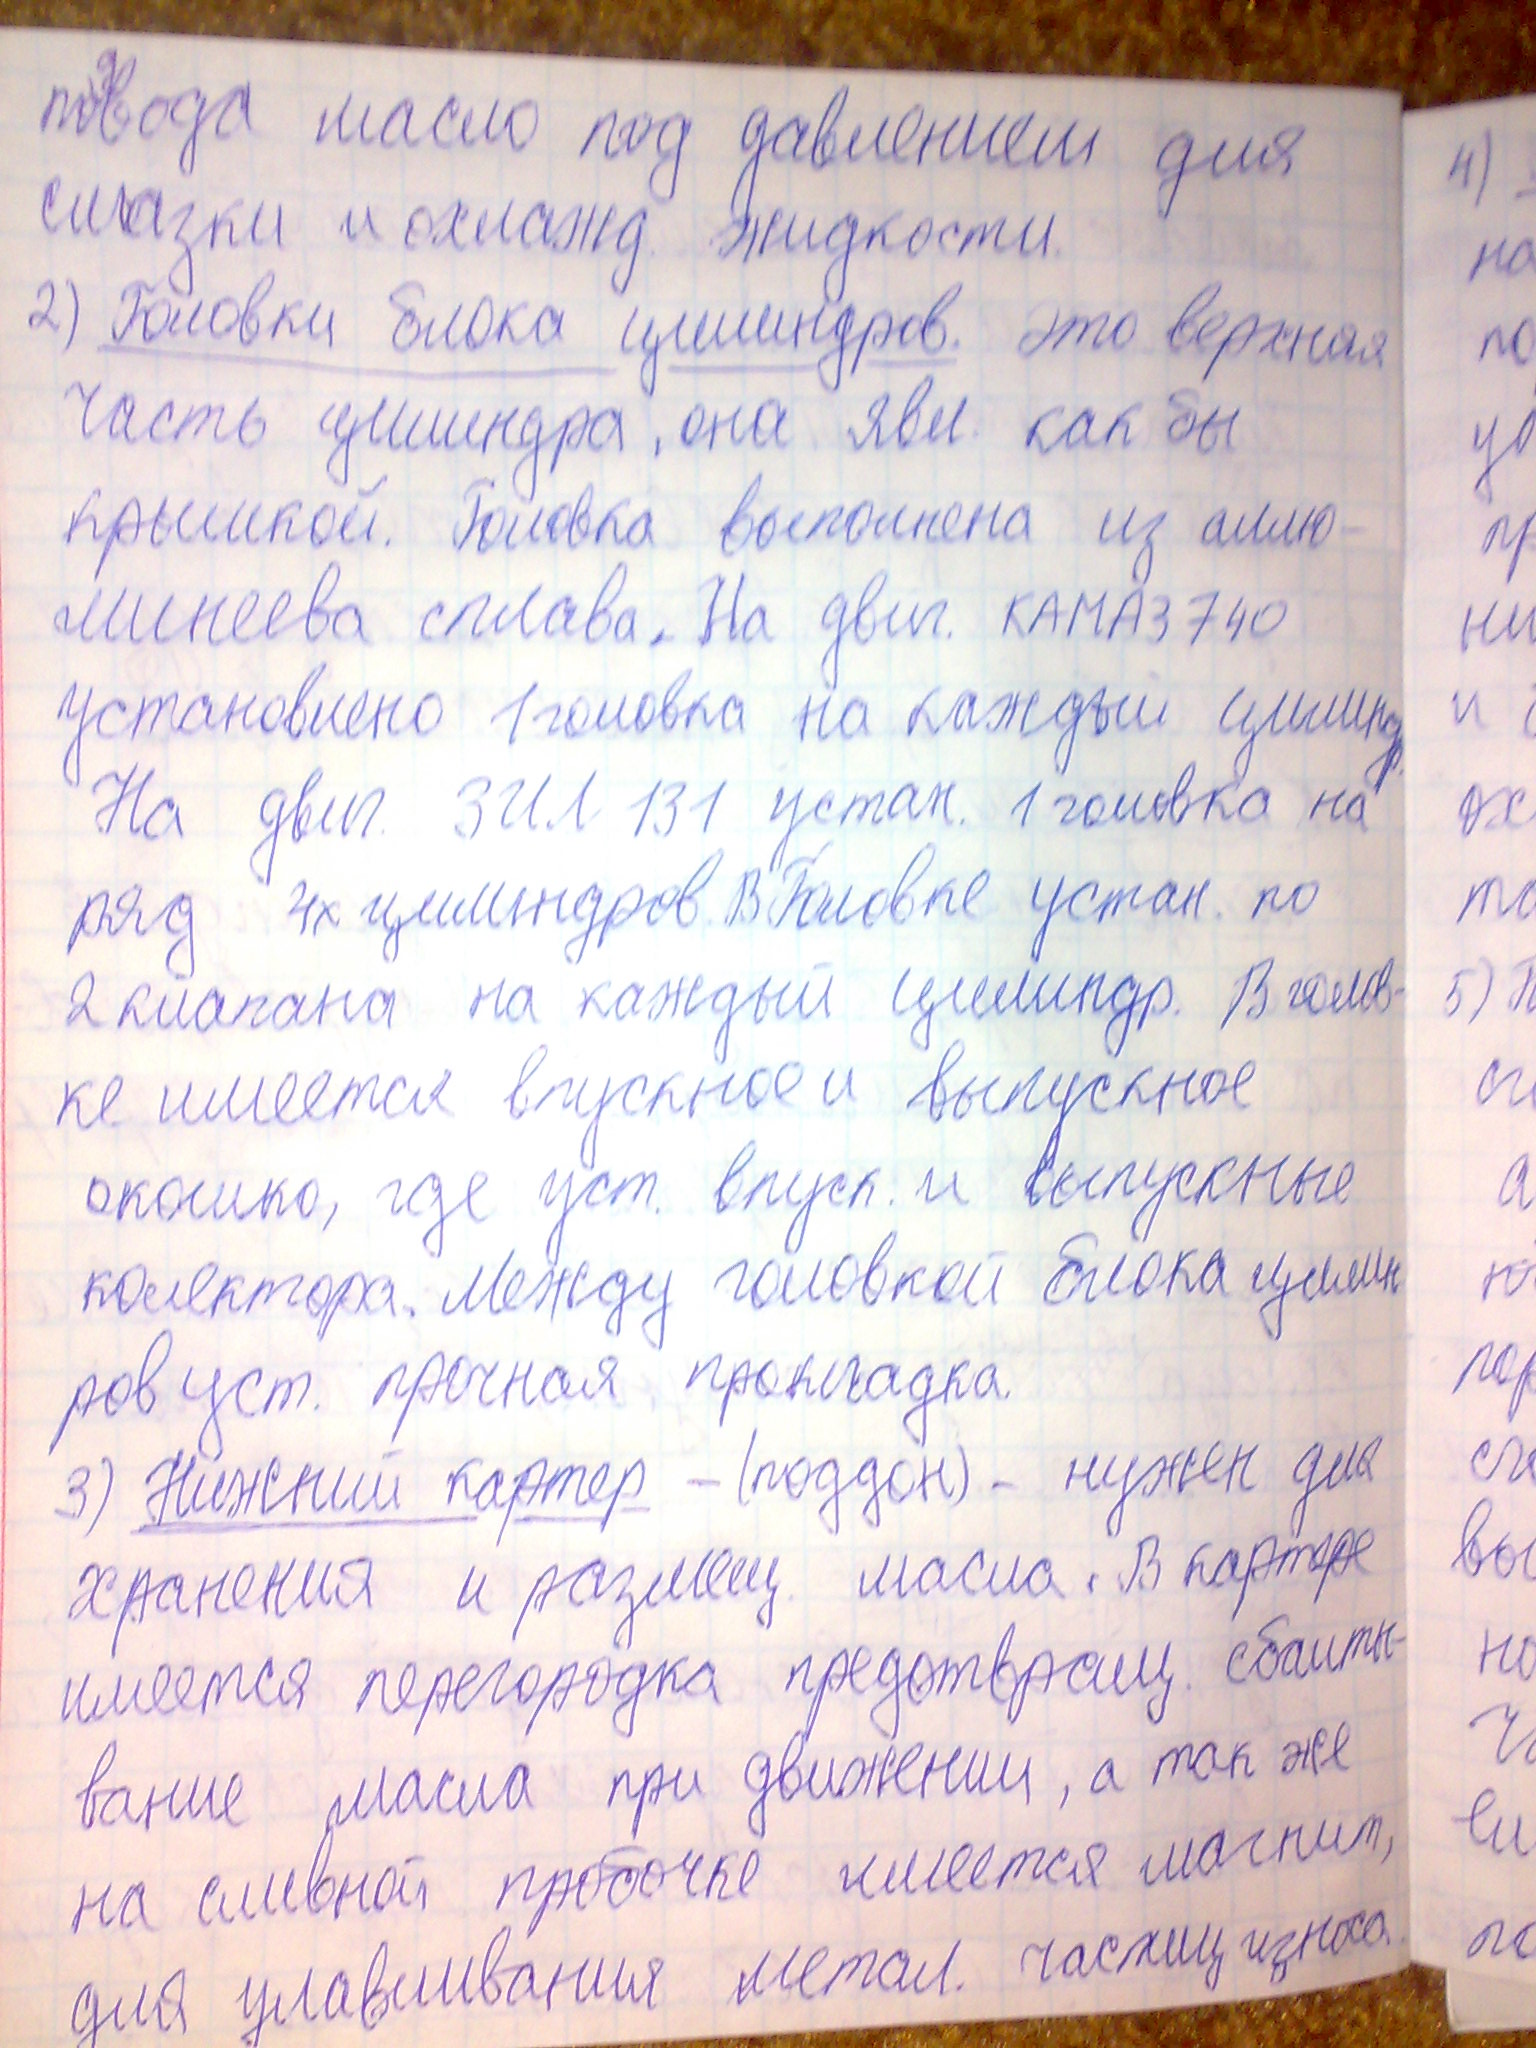 подвода масло под давлением для
смазки и охлажд. жидкости.
2) Головки блока цилиндров. это верхная
часть цилиндра, она явл. как бы
крышкой. Головка выполнена из аллю-
минеева сплава. На двиг. КАМАЗ 740
установлено 1 головка на каждый цилиндр.
На двиг. ЗИЛ 131 устан. 1 головка на
ряд 4х цилиндров. В Головке устан. по
2 клапана на каждый цилиндр. В голов-
ке имеется впускное и выпускное
окошко, где уст. впуск. и выпускные
колектора. Между головкой блока цилин
ров уст. прочная прокладка.
3) Нижний картер – (поддон) – нужен для
хранения и размещ. масла. В картере
имеется перегородка предотвращ. сбалты-
вание масла при движении, а так же
на сливной пробочке имеется магнит,
для улавливания метал. частиц износа.
4)
на
по
ув
пр
ни
и
ох
та
5)